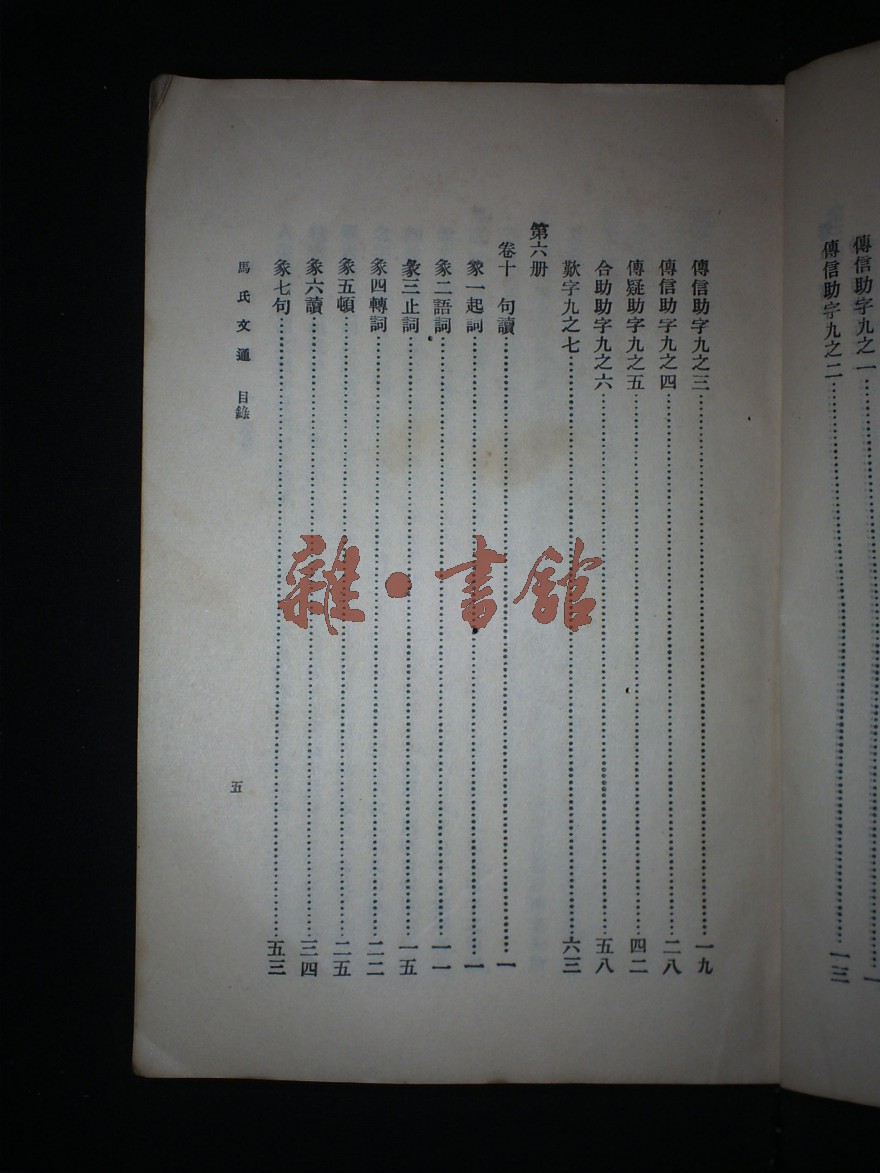 傳信助字九之一 一
傳信助字九之二 一三
傳信助字九之三 一九
傳信助字九之四 二八
傳疑助字九之五 四二
合助助字九之六 五八
歎字九之七 六三
第六册
卷十 句讀 一
彖一起詞 一
彖二語詞 一一
彖三止詞 一五
彖四轉詞 二二
彖五頓 二五
彖六讀 三四
彖七句 五三
馬氏文通 目錄 五
雜·書館